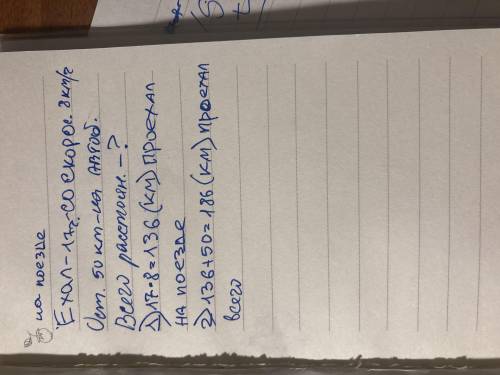 на поезде
Ехал-17ч-со скорос. 8км/ч
Ост. 50км-на автоб.
Всего расстоян.-?
1)17·8=136(км)проехал
на поезде
2)136+50=186(км)проехал
всего